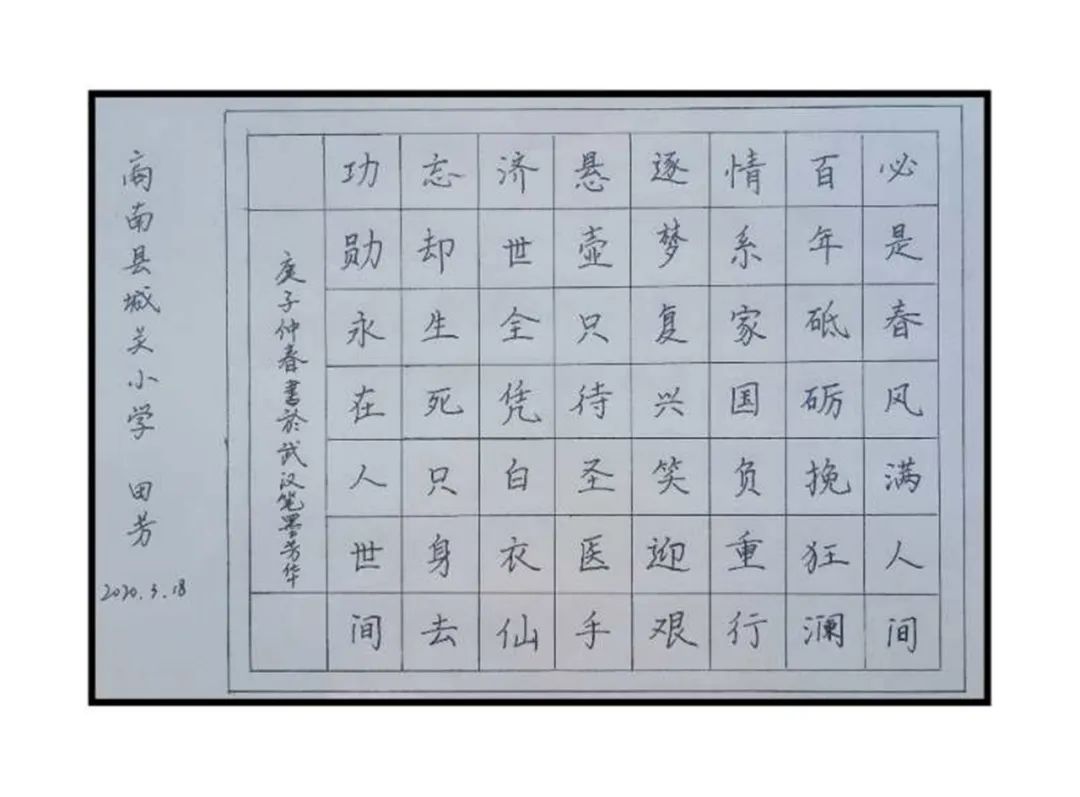 必是春风满人间
百年砥砺挽狂澜
情系家国负重行
逐梦复兴笑迎艰
悬壶只待圣医手
济世全凭白衣仙
忘却生死只身去
功勋永在人世间
庚子仲春书於武汉笔墨芳华
商南县城关小学 田芳
2020.3.18